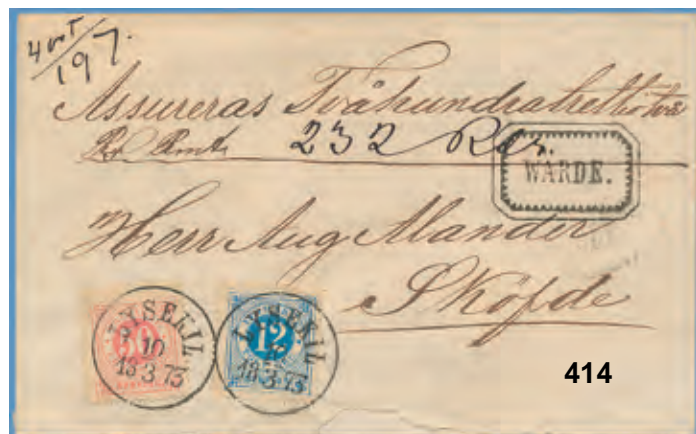 4 ort
197.
Assureras Tvåhundratrettiotvå
Rd Rmt 232 Rdr.
WARDE.
Herr Aug Mander
Sköfde
50
LYSEKIL
10
18 3 73
12
LYSEKIL
18 3 73
414